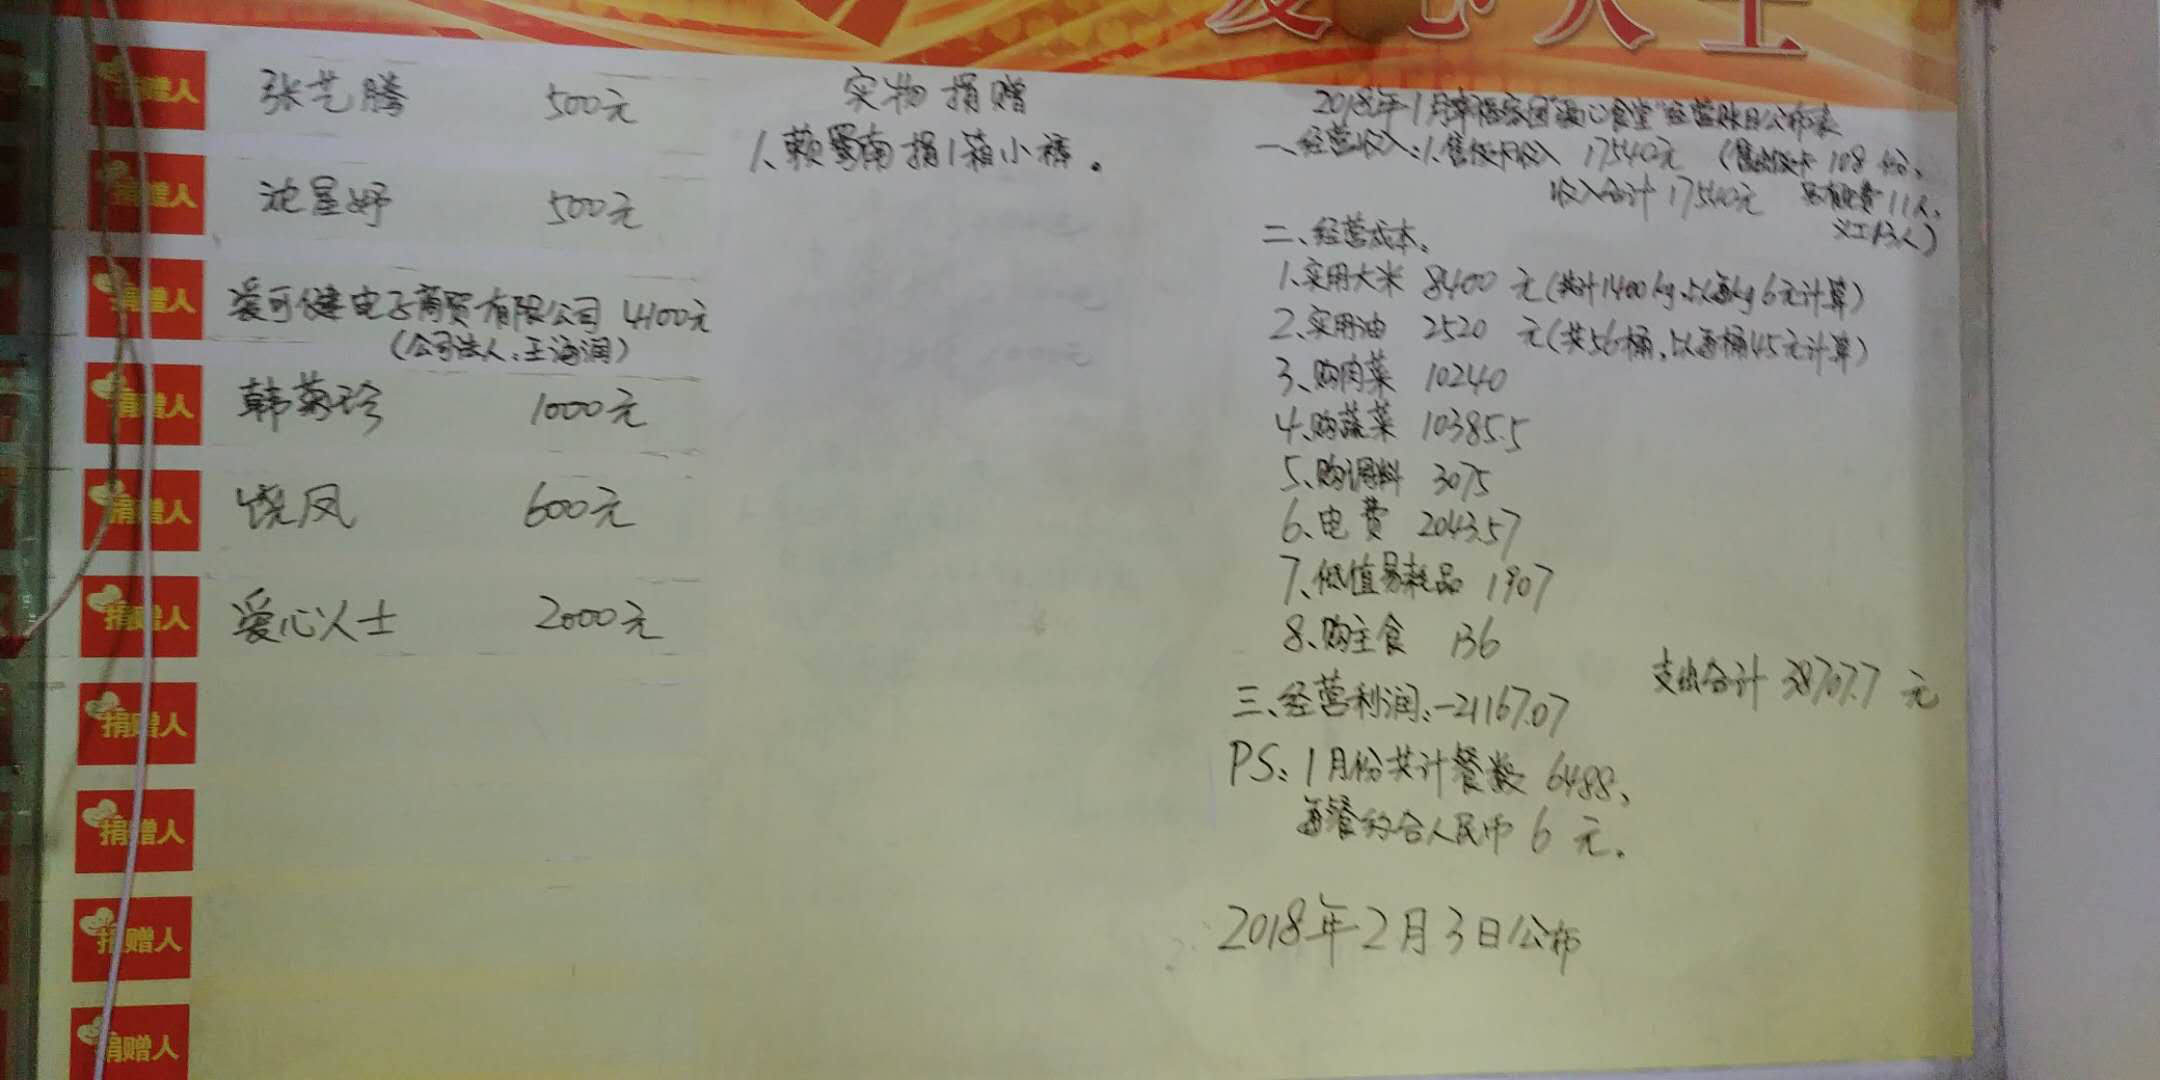 爱心人士
捐赠人 张艺腾 500元
捐赠人 池星妤 500元
捐赠人 爱可健电子商贸有限公司 4100元
(公司法人:王海润)
捐赠人 韩菊珍 1000元
捐赠人 饶凤 600元
捐赠人 爱心人士 2000元
捐赠人
捐赠人
捐赠人
捐赠人
实物捐赠
1、赖蜀南捐1箱小裤。
2018年1月幸福家园"爱心食堂"经营账目公布表
一、经营收入:1.售饭卡收入 17540元 (售出饭卡 108
收入合计 17540元 另有免费11人,
义工13人)
二、经营成本。
1、实用大米 8400 元(共计1400kg,以每kg6元计算)
2、实用油 2520 元(共56桶,以每桶45元计算)
3、购肉菜 10240
4、购蔬菜 10385.5
5、购调料 3075
6、电费 2043.57
7、低值易耗品 1907
8、购主食 136
支出合计 38707.7 元
三、经营利润:-21167.07
PS:1月份共计餐数 6488,
每餐约合人民币 6 元。
2018年2月3日公布